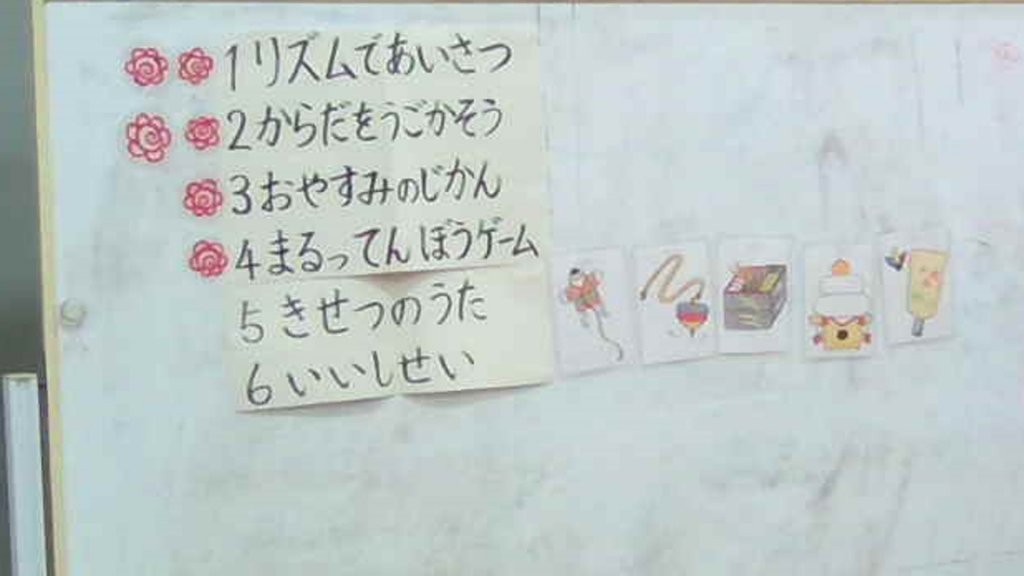 1 リズムであいさつ
2 からだをうごかそう
3 おやすみのじかん
4 まるってんぼうゲーム
5 きせつのうた
6 いいしせい